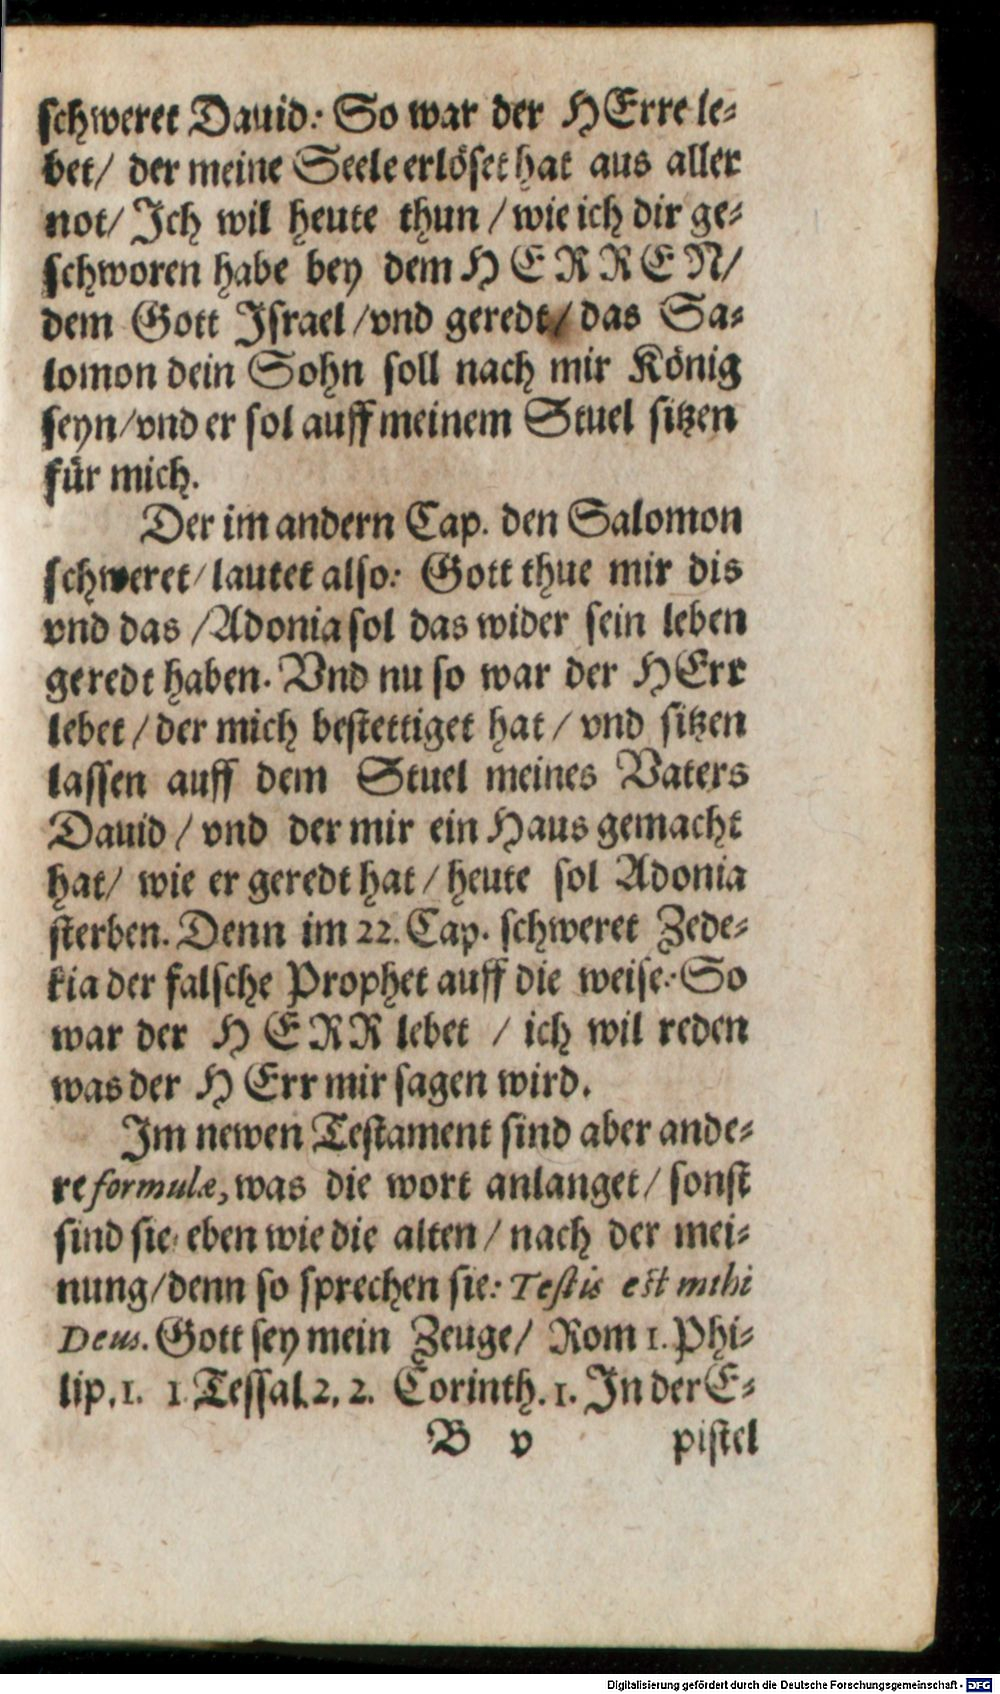 schweret Dauid: So war der HErre le-
bet/ der meine Seele erlöset hat aus aller
not/ Jch wil heute thun / wie ich dir ge-
schworen habe bey dem HERREN/
dem Gott Jsrael / vnd geredt / das Sa-
lomon dein Sohn soll nach mir König
seyn/ vnd er sol auff meinem Stuel sitzen
für mich.
Der im andern Cap. den Salomon
schweret/ lautet also: Gott thue mir dis
vnd das / Adonia sol das wider sein leben
geredt haben. Vnd nu so war der HErr
lebet / der mich bestettiget hat / vnd sitzen
lassen auff dem Stuel meines Vaters
Dauid / vnd der mir ein Haus gemacht
hat/ wie er geredt hat / heute sol Adonia
sterben. Denn im 22. Cap. schweret Zede-
kia der falsche Prophet auff die weise: So
war der HERR lebet / ich wil reden
was der HErr mir sagen wird.
Jm newen Testament sind aber ande-
re formulæ, was die wort anlanget/ sonst
sind sie eben wie die alten / nach der mei-
nung/ denn so sprechen sie: Testis est mihi
Deus. Gott sey mein Zeuge/ Rom 1. Phi-
lip. 1. 1 Tessal. 2. 2. Corinth. 1. Jn der E-
B v pistel
Digitalisierung gefördert durch die Deutsche Forschungsgemeinschaft - DFG